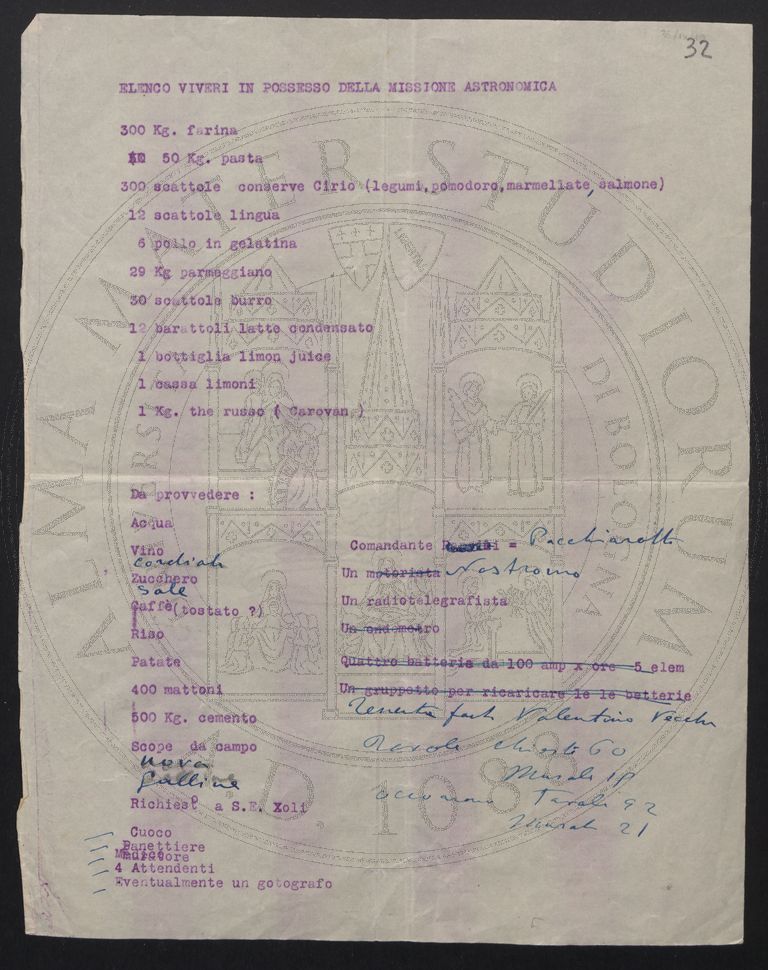 32
ELENCO VIVERI IN POSSESSO DELLA MISSIONE ASTRONOMICA
300 Kg. farina
50 Kg. pasta
300 scattole conserve Cirio (legumi,pomodoro,marmellate,salmone)
12 scattole lingua
6 pollo in gelatina
29 Kg parmeggiano
30 scattole burro
12 barattoli latte condensato
1 bottiglia limon juice
1 cassa limoni
1 Kg. the russo ( Carovan.)
Da provvedere :
Acqua
Vino
cordiali
Zucchero
Sale
Caffè(tostato ?)
Riso
Patate
400 mattoni
500 Kg. cemento
Scope da campo
uova
galline
Richiest a S.E. Xoli
Cuoco
Panettiere
Medico
4 Attendenti
Eventualmente un gotografo
Comandante = Pacchiarotti
Un motorista Nostromo
Un radiotelegrafista
Un ondometro
Quattro batterie da 100 amp x ore 5 elem
Un gruppetto per ricaricare le le batterie
Tenente Valentino
60
Tavole 92
21
ALMA MATER STUDIORUM
UNIVERSITÀ DI BOLOGNA
A.D. 1088
LIBERTAS